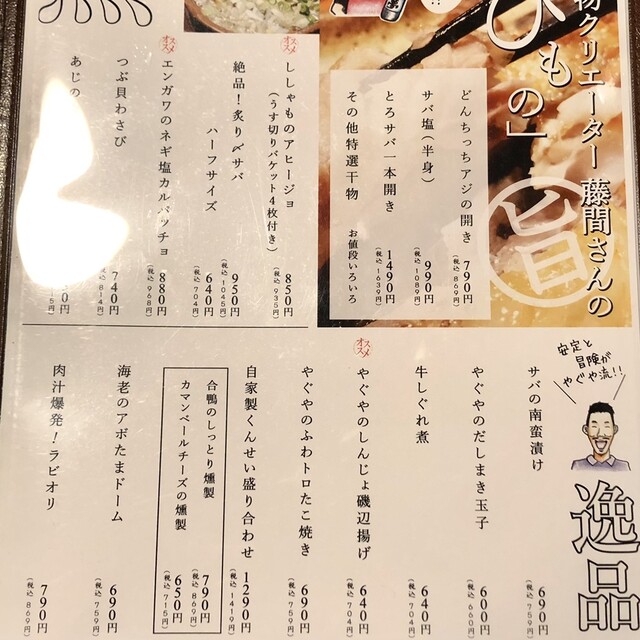 物クリエーター 藤間さんの
ひもの」
旨
どんちっちアジの開き 790円
(税込 869円)
サバ塩(半身) 990円
(税込 1089円)
とろサバ一本開き 1490円
(税込 1639円)
その他特選干物 お値段いろいろ
オススメ
ししゃものアヒージョ 850円
(うす切りバケット4枚付き) (税込 935円)
絶品!炙り〆サバ 950円
(税込 1045円)
ハーフサイズ 640円
(税込 704円)
オススメ
エンガワのネギ塩カルパッチョ 880円
(税込 968円)
つぶ貝わさび 740円
(税込 814円)
あじの
安定と
冒険が
やぐや流!!
逸品
サバの南蛮漬け 690円
(税込 759円)
やぐやのだしまき玉子 600円
(税込 660円)
牛しぐれ煮 640円
(税込 704円)
オススメ
やぐやのしんじょ磯辺揚げ 640円
(税込 704円)
やぐやのふわトロたこ焼き 690円
(税込 759円)
自家製くんせい盛り合わせ 1290円
(税込 1419円)
合鴨のしっとり燻製 790円
(税込 869円)
カマンベールチーズの燻製 650円
(税込 715円)
海老のアボたまドーム 690円
(税込 759円)
肉汁爆発!ラビオリ 790円
(税込 869円)